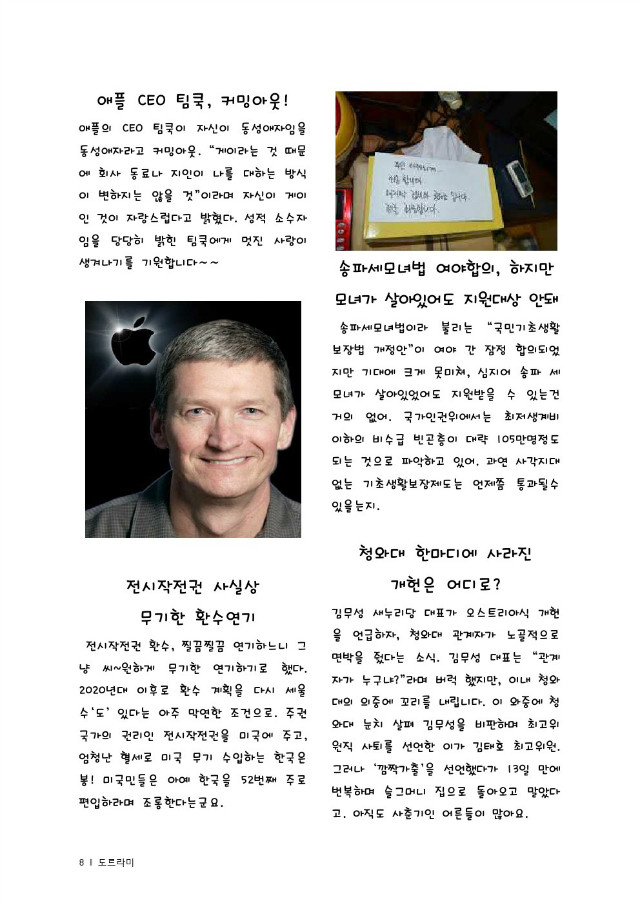 애플 CEO 팀쿡, 커밍아웃!
애플의 CEO 팀쿡이 자신이 동성애자임을
동성애자라고 커밍아웃. “게이라는 것 때문
에 회사 동료나 지인이 나를 대하는 방식
이 변하지는 않을 것”이라며 자신이 게이
인 것이 자랑스럽다고 밝혔다. 성적 소수자
임을 당당히 밝힌 팀쿡에게 멋진 사랑이
생겨나기를 기원합니다~~
전시작전권 사실상
무기한 환수연기
전시작전권 환수, 찔끔찔끔 연기하느니 그
냥 씨~원하게 무기한 연기하기로 했다.
2020년대 이후로 환수 계획을 다시 세울
수‘도’ 있다는 아주 막연한 조건으로. 주권
국가의 권리인 전시작전권을 미국에 주고,
엄청난 혈세로 미국 무기 수입하는 한국은
봉! 미국민들은 아예 한국을 52번째 주로
편입하라며 조롱한다는군요.
주인 아주머니께...
죄송합니다.
마지막 집세와 공과금입니다.
정말 죄송합니다.
송파세모녀법 여야합의, 하지만
모녀가 살아있어도 지원대상 안돼
송파세모녀법이라 불리는 “국민기초생활
보장법 개정안”이 여야 간 잠정 합의되었
지만 기대에 크게 못미쳐, 심지어 송파 세
모녀가 살아있었어도 지원받을 수 있는건
거의 없어. 국가인권위에서는 최저생계비
이하의 비수급 빈곤층이 대략 105만명정도
되는 것으로 파악하고 있어. 과연 사각지대
없는 기초생활보장제도는 언제쯤 통과될수
있을는지.
청와대 한마디에 사라진
개헌은 어디로?
김무성 새누리당 대표가 오스트리아식 개헌
을 언급하자, 청와대 관계자가 노골적으로
면박을 줬다는 소식. 김무성 대표는 “관계
자가 누구냐?”라며 버럭 했지만, 이내 청와
대의 의중에 꼬리를 내립니다. 이 와중에 청
와대 눈치 살펴 김무성을 비판하며 최고위
원직 사퇴를 선언한 이가 김태호 최고위원.
그러나 ‘깜짝가출’을 선언했다가 13일 만에
번복하며 슬그머니 집으로 돌아오고 말았다
고. 아직도 사춘기인 어른들이 많아요.
8 | 도르라미